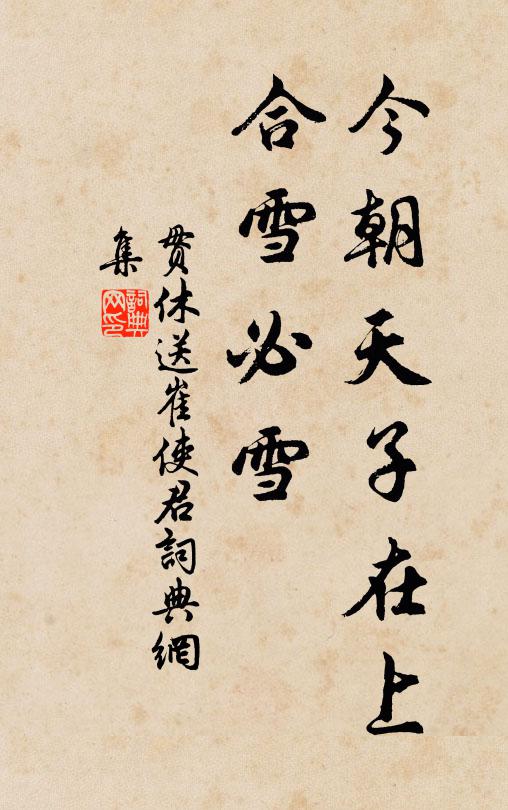 今朝天子在上
合雪必雪
貫休送崔使君詞典網
集
詞典
网印